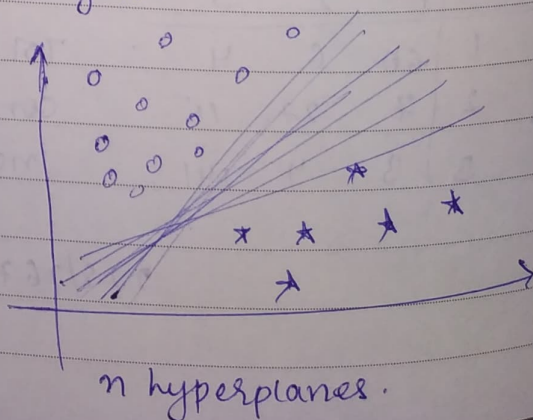 n hyperplanes.